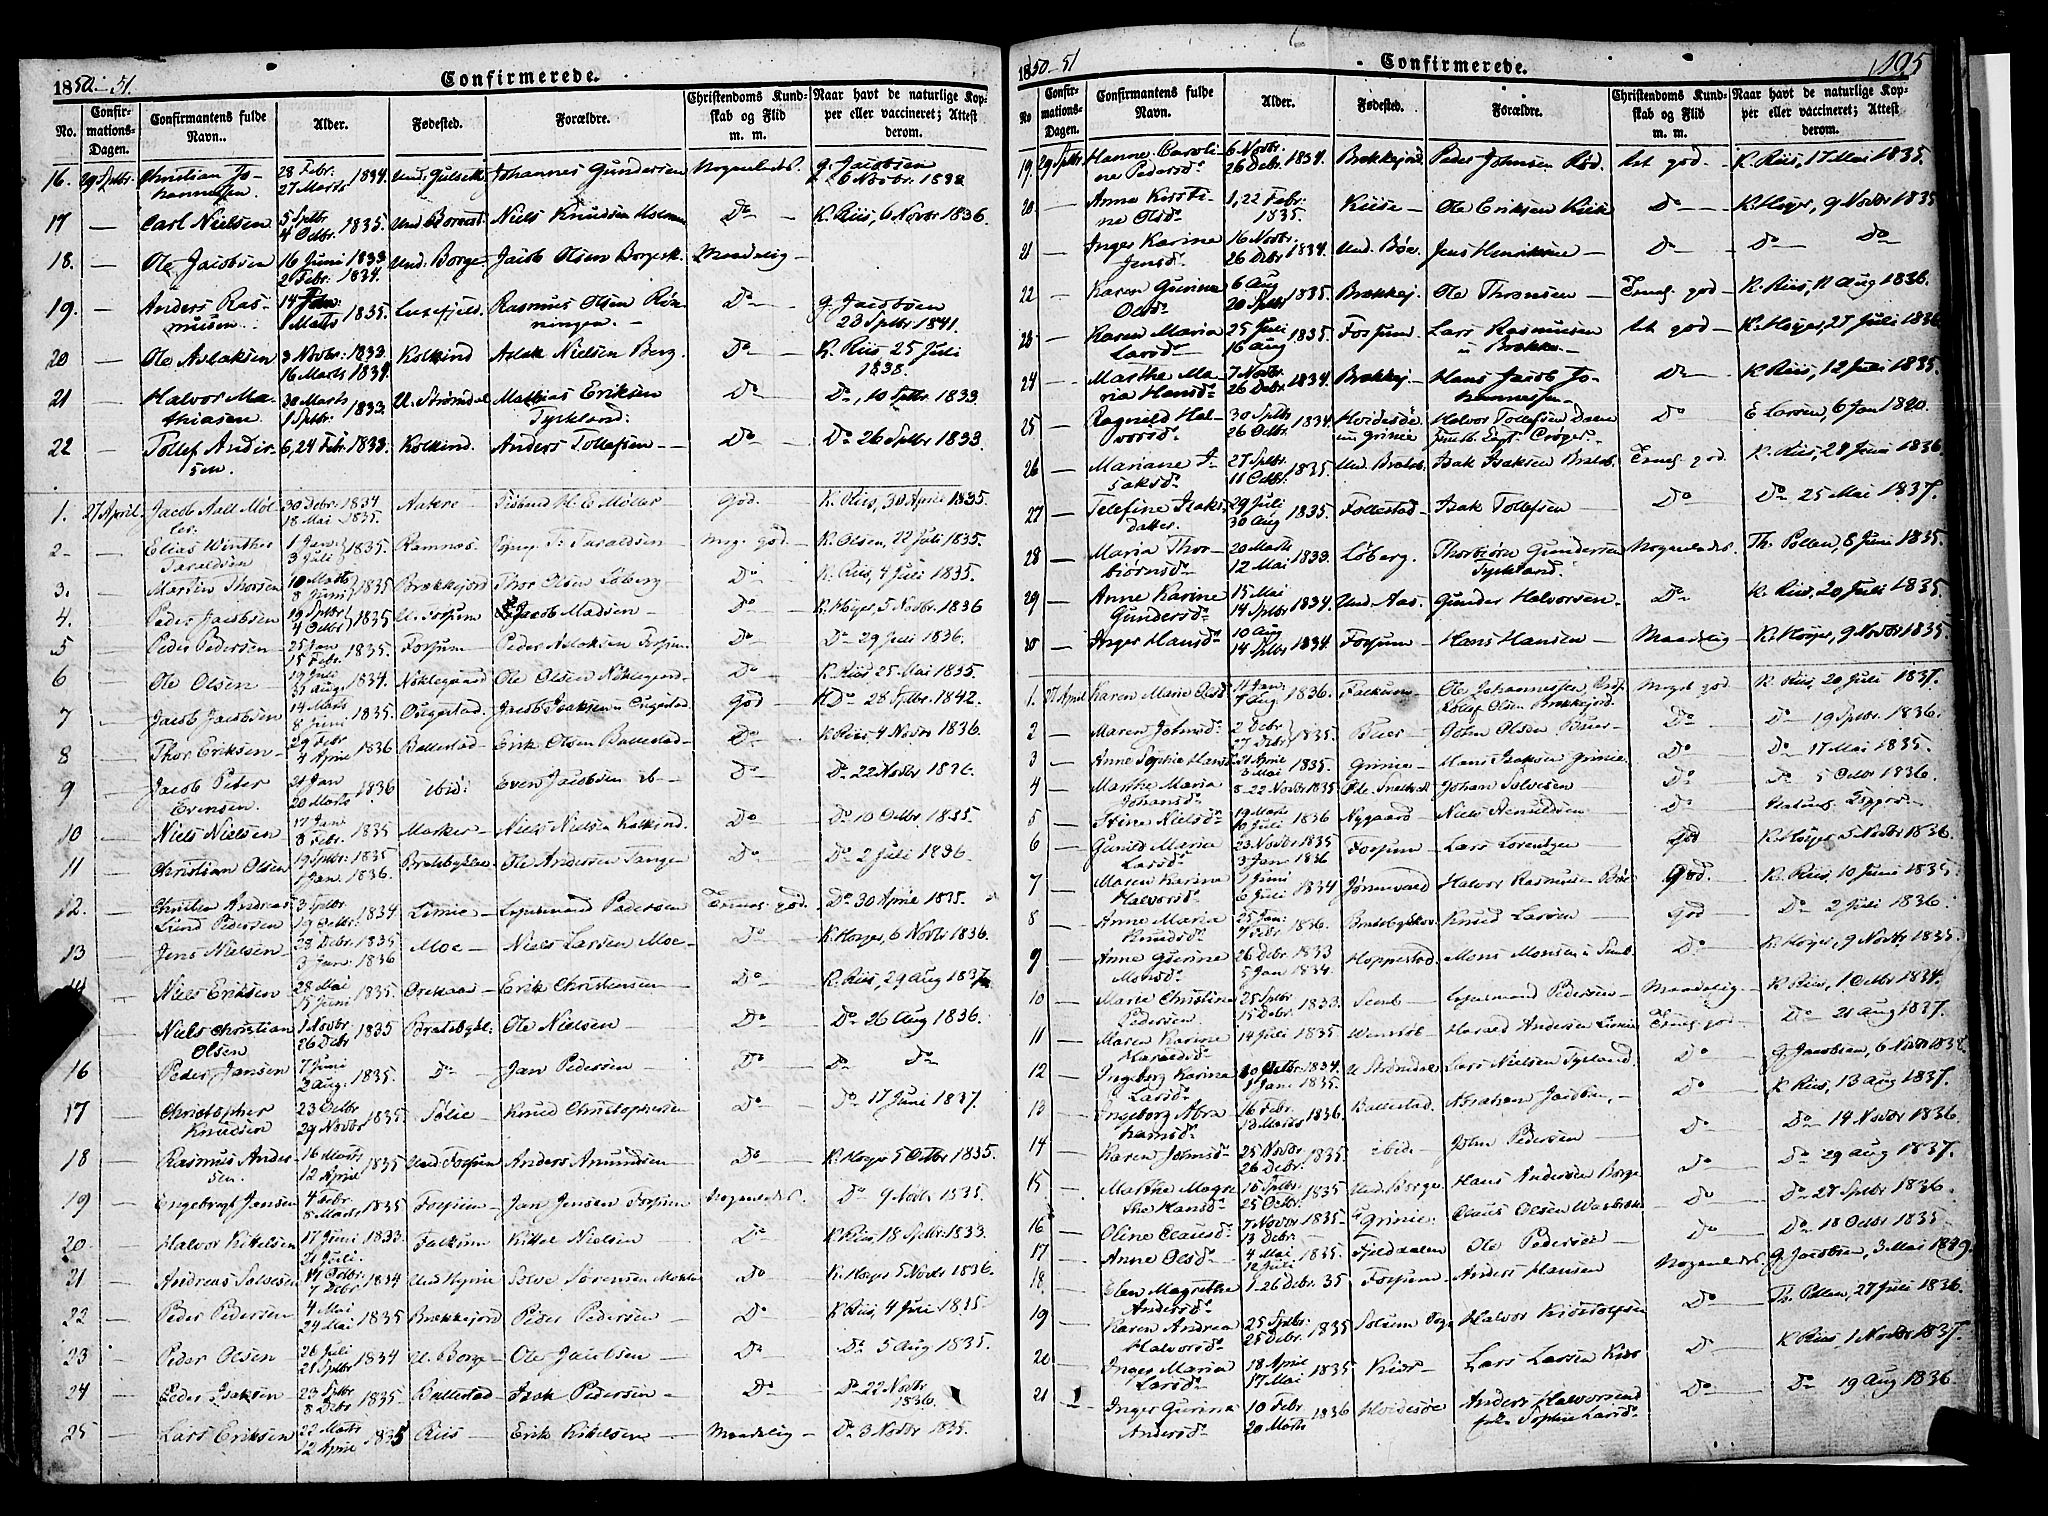 1850-51.
Confirmerede.
No. Confirmations-Dagen. Confirmantens fulde Navn. Alder. Fødested. Forældre. Christendoms Kundskab og Flid m. m. Naar havt de naturlige Kopper eller vaccineret; Attest derom.
16. 29 Sptbr. Christian Johannessen 28 Febr. 27 Marts 1834. Und. Gulset Johannes Gundersen Nogenleds. G. Jacobsen 6 Novbr. 1838
17 — Carl Nielsen 5 Sptbr 4 Octbr. 1835. Niels Knudsen Do — K. Riis, 6 Novbr 1836.
18. — Ole Jacobsen 16 Juni 1833 2 Febr. 1834. Und. Borge Jacob Olsen Maadelig —
19. — Anders Rasmusen 1 Marts 1835. Luxefjeld. Rasmus Olsen Rønningen. — Do — G. Jacobsen 23 Sptbr 1841.
20 — Ole Aslaksen 3 Novbr. 1833 16 Marts 1834. Kolkind Aslak Nielsen Berg. Do — K. Riis 25 Juli 1838.
21 — Halvor Mathiasen 30 Marts 1 Sptbr. 1833. U. Strømdal Mathias Eriksen Tyskland. Do — Do, 10 Sptbr 1833.
22 — Tollef Andersen. 6, 24 Febr. 1833. Kolkind. Anders Tollefsen — Do — Do 26 Sptbr 1833.
1. 27 April. Jacob Aall Møller. 30 Decbr. 1834 18 Mai 1835. H. E. Møller God. K. Riis, 30 April 1835.
2 — Elias Winther Taraldsen 1 Jan. 3 Juli 1835. Ramnæs. T. Taraldsen — Meg. god. K. Olsen, 22 Juli 1835.
3. — Martin Thorsen 10 Marts 8 Juni 1835 Brækkejord Thor Olsen Løberg — Do — K. Riis, 4 Juli 1835.
4. — Peder Jacobsen 19 Sptbr 4 Octbr 1835 U. Fossum Jacob Madsen — Do — K. Høyer, 5 Novbr. 1836
5 — Peder Pedersen — 25 Jan 15 Febr. 1835. Fossum — Peder Aslaksen Fossum Do Do 29 Juli 1836.
6 — Ole Olsen — 19 Juli 31 Aug. 1834. Nøklegaard Ole Olsen Do K. Riis 25 Mai 1835.
7 — Jacob Jacobsen 14 Marts 8 Juni 1835. Ougestad. Jacob Isaksen Ougestad God — Do 28 Sptbr. 1842.
8 — Thor Eriksen — 29 Febr 4 April 1836 Ballestad — Erik Olsen Ballestad — Do — K. Riis, 4 Novbr 1836.
9 — Jacob Peder Evensen. 21 Jan 20 Marts 1836 ibid: Even Jacobsen ib — Do — Do 22 Novbr 1836.
10 — Niels Nielsen 17 Jan 8 Febr. 1835 Marker — Niels Nielsen Kolkind. Do Do 10 Octbr. 1835.
11 — Christian Olsen 19 Sptbr. 1835 1 Jan. 1836. Ole Andersen Tange Do — Do 2 Juli 1836.
12. — Christen Andreas Lund Pedersen 3 Sptbr. 19 Octbr. 1834. Limie — Pedersen Temel. god. Do 30 April 1835.
13 — Jens Nielsen — 28 Decbr 1835 3 Jan. 1836 Moe — Niels Larsen Moe — Do — K. Høyer, 6 Novbr 1836.
14 — Niels Eriksen 28 Mai 15 Juni 1835. Erik Christensen — Do K. Riis, 29 Aug 1837
— Niels Christian Olsen 1 Novbr 26 Decbr 1835 Ole Nielsen — Do — Do 26 Aug 1836.
16 — Peder Jansen 7 Juni 2 Aug. 1835. Do — Jan Pedersen — Do — Do Do
17 — Christopher Knudsen 23 Octbr 29 Novbr 1835 Sølie — Knud Christophersen Do — Do 17 Juni 1837.
18 — Rasmus Andersen. 16 Marts 12 April 1835 Und. Fossum Anders Amundsen Do — K. Høyer 5 Octbr 1835.
19 — Engebregt Jansen 4 Febr. 8 Marts 1835 Fossum — Jan Jensen Fossum Nogenleds. Do 9 Novbr. 1835.
20 — Halvor Kittelsen 17 Juni 21 Juli 1833. Falkum — Kittel Nielsen — Do K. Riis 18 Sptbr. 1833.
21 — Andreas Solvesen 14 Octbr. 7 Decbr 1834 Und. Solve Sørensen Do K. Høyer 5 Novbr 1836.
22 — Peder Pedersen 4 Mai 24 Mai 1835 Brækkejord Peder Pedersen — Do K. Riis, 4 Juli 1835.
23 — Peder Olsen 26 Juli 21 Sptbr 1834 U. Borge — Ole Jacobsen — Do Do 5 Aug 1835.
24 — Peder Isaksen 23 Sptbr 8 Decbr 1835 — Ballestad — Isak Pedersen — Do Do 22 Novbr 1836.
25 — Lars Eriksen 22 Marts 12 April 1835 Riis — Erik Kittelsen — Maadelig — Do 3 Novbr 1835.
1850-51
Confirmerede.
195
No Confirmations-Dagen. Confirmantens fulde Navn. Alder. Fødested. Forældre. Christendoms Kundskab og Flid m. m. Naar havt de naturlige Kopper eller vaccineret; Attest derom.
19. 29 Sptbr. Hanne Caroline Pedersd. 6 Novbr. 26 Decbr. 1834. Brækkejord. Peder Johnsen Rød. tet god. — K. Riis, 17 Mai 1835.
20. — Anne Kirstine Olsd. 1, 22 Febr. 1835. Kiise — Ole Eriksen Kiise Do — K. Høyer, 9 Novbr 1835
21 — Inger Karine Jensd. 16 Novbr. 26 Decbr 1834. Und. Bøe. Jens Henriksen — Do — Do Do
22 — Karen Gurine Olsd. 6 Aug 20 Sptbr 1835. Brækkej. Ole Thronsen — Temel. god — K. Riis, 11 Aug 1836.
23 — Karen Maria Larsd. 25 Juli 16 Aug 1835. Fossum. Lars Rasmusen u Brække — tet god — K. Høyer, 27 Juli 1836
24 — Marthe Maria Hansd. 7 Novbr. 26 Decbr 1834. Brækkej — Hans Jacob Johannessen — Do — K. Riis, 12 Juli 1835.
25 — Ragnild Halvorsd. 30 Sptbr 26 Octbr. 1834. Hvidesøe Halvor Tollefsen Do E. Larsen, 6 Jan 1820.
26 — Mariane Isaksd. 27 Sptbr. 11 Octbr. 1835. Isak Isaksen Temel. god. K. Riis, 28 Juni 1836.
27 — Telefine Isaksdatter. 29 Juli 30 Aug 1835. Follestad — Isak Tollefsen — Do Do 25 Mai 1837.
28 — Maria Thorbiørnsd. 20 Marts 12 Mai 1833. Løberg. Thorbiørn Gundersen Tyskland. Nogenleds. Th. Pollen, 8 Juni 1835.
29 — Anne Karine Gundersd. 15 Mai 14 Sptbr 1834. Und. Aas. Gunder Halvorsen — Do — K. Riis, 20 Juli 1835.
30 — Inger Hansd. 10 Aug 14 Sptbr 1834. Fossum — Hans Hansen — Maadelig — K. Høyer, 9 Novbr 1835.
1. 27 April Karen Marie Olsd. 11 Jan. 7 Aug 1836. Falkum — Ole Johannessen Tollef Olsen Brækkejord. Meget god. K. Riis, 20 Juli 1837.
2 — Maren Johnsd. 2 Decbr 27 Decbr 1835. Buer — John Olsen Buer — Do Do 19 Sptbr. 1836.
3 — Anne Sophie Hansd. 21 April 3 Mai 1835. Grinie — Hans Isaksen Grinie. Do Do 17 Mai 1835.
4 — Marthe Maria Johansd. 8-22 Novbr 1835 Johan Solvesen Do Do 5 Octbr 1836.
5 — Stine Nielsd. 19 Marts 10 Juli 1836 Nygaard — Niels Do
6 — Gunild Maria Larsd. 23 Novbr 1835 3 Jan 1836 Fossum — Lars Lorentzen God K. Høyer 5 Novbr 1836.
7 — Maren Karine Halvorsd. 1 Juni 6 Juli 1834 Jønnevald Halvor Rasmusen God. K. Riis, 10 Juni 1835
8 — Anne Maria Knudsd. 25 Jan. 1836. Knud Larsen God Do 2 Juli 1836.
9 — Anne Gurine Monsd. 26 Decbr 1833 5 Jan 1834. Hoppestad. Mons Monsen Do K. Høyer, 9 Novbr 1835.
10 — Maria Christine Pedersen 25 Sptbr 15 Decbr. 1833. Semb — Pedersen — Maadelig — K. Riis, 1 Octbr 1834.
11 — Maren Karine Haraldsd. 14 Juli 1835 Harald Andersen Temel. god. Do 21 Aug 1837.
12 — Ingeborg Karine Larsd. Octbr. 1834. 1 Jan. 1835. U. Strømdal Lars Nielsen Do G. Jacobsen, 6 Novbr 1838.
13 — Ingeborg Abrahamsd. 16 Febr. 13 Marts 1836. Ballestad. Abraham Jacobsen — Do K. Riis, 13 Aug 1837.
14 — Karen Johnsd. 25 Novbr 26 Decbr. 1835. ibid. John Pedersen — Do Do 14 Novbr 1836.
15 — Marthe Magrethe Hansd. 16 Sptbr. 25 Octbr. 1835 Und. Borge Hans Andersen Borge Do Do 29 Aug 1837.
16 — Oline Clausd. 7 Novbr 13 Decbr. 1835 — Grinie. Claus Olsen Do Do 27 Sptbr 1836.
17 — Anne Olsd. 4 Mai 12 Juli 1835. Fjeldaalen Ole Pedersen Do Do 18 Octbr 1835.
18. — Elen Magrethe Andersd. 1-26 Decbr. 35 Fossum — Anders Hansen Nogenleds. G. Jacobsen, 3 Mai 1839.
19 — Karen Andrea Halvorsd. 25 Sptbr. 25 Decbr. 1835 Solum Halvor Do — Th. Pollen, 27 Juli 1836.
20 — Inger Maria Larsd. 18 April 17 Mai 1835 Kiise — Lars Larsen Kiise Do K. Riis, 1 Novbr 1837.
21 — Inger Gurine Andersd. 10 Febr. 20 Marts 1836 Hvidesøe Anders Halvorsen Sophie Larsd. Do — Do 19 Aug 1836